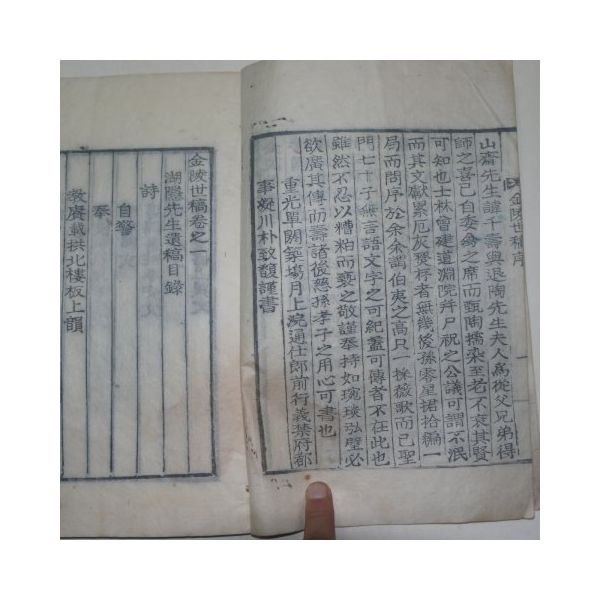 金陵世稿序
山齋先生諱千壽與退陶先生夫人為從父兄弟得
師之喜已自委禽之席而甄陶擩染至老不衰其賢
可知也士林會建道淵院幷尸祝之公議可謂不泯
而其文獻累厄灰燹存者無幾後孫零星捃拾編一
局而問序於余余謂伯夷之高只一採薇歌而已聖
門七十子無言語文字之可紀盖可傳者不在此也
雖然不忍以糟粕而褻之敬謹奉持如琬琰弘璧必
欲廣其傳而壽諸後慈孫孝子之用心可書也
重光單閼築場月上浣通仕郎前行義禁府都
事凝川朴致馥謹書
金陵世稿卷之一
湖隱先生遺稿目錄
詩
自警
奉
敎賡載拱北樓板上韻